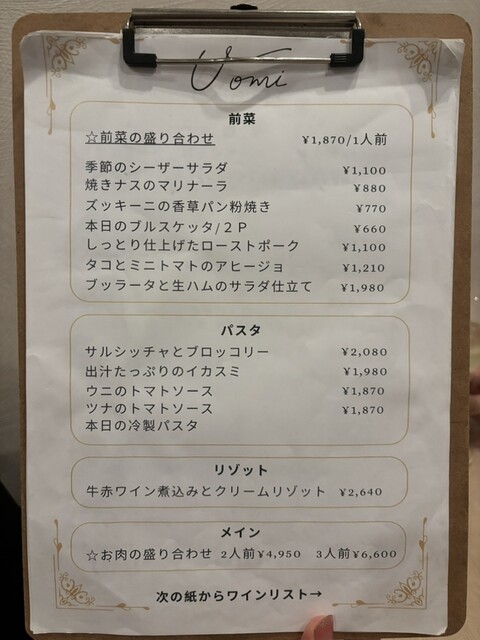 Uomi
前菜
☆前菜の盛り合わせ ¥1,870/1人前
季節のシーザーサラダ ¥1,100
焼きナスのマリナーラ ¥880
ズッキーニの香草パン粉焼き ¥770
本日のブルスケッタ/２Ｐ ¥660
しっとり仕上げたローストポーク ¥1,100
タコとミニトマトのアヒージョ ¥1,210
ブッラータと生ハムのサラダ仕立て ¥1,980
パスタ
サルシッチャとブロッコリー ¥2,080
出汁たっぷりのイカスミ ¥1,980
ウニのトマトソース ¥1,870
ツナのトマトソース ¥1,870
本日の冷製パスタ
リゾット
牛赤ワイン煮込みとクリームリゾット ¥2,640
メイン
☆お肉の盛り合わせ 2人前¥4,950 3人前¥6,600
次の紙からワインリスト→